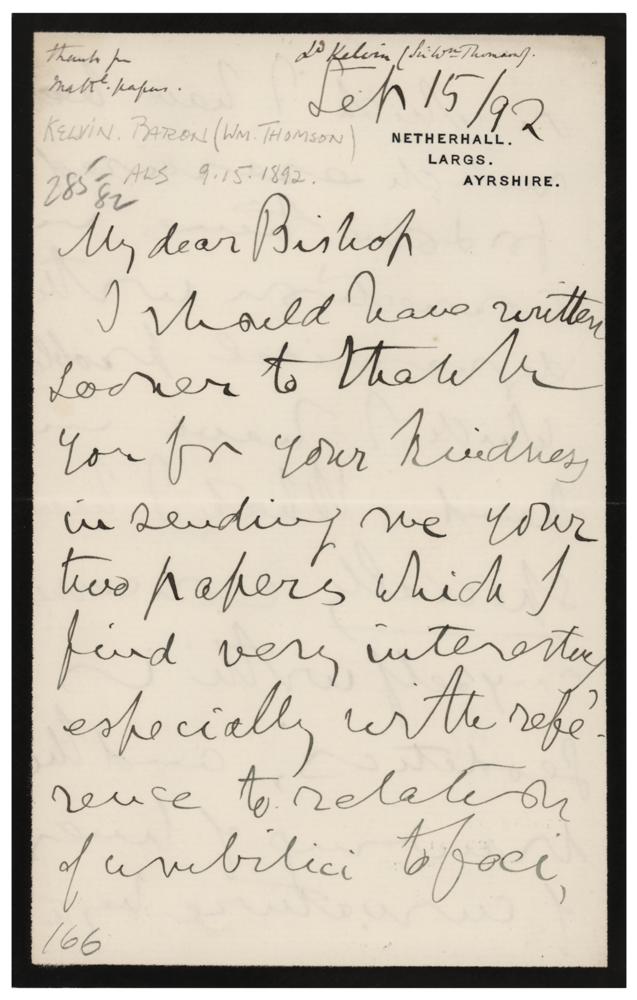 thanks for
Mathl. papers.
Ld Kelvin (Sir Wm Thomson).
Sep 15/92
KELVIN. BARON (WM. THOMSON)
ALS 9.15.1892.
285-82
NETHERHALL.
LARGS.
AYRSHIRE.
My dear Bishop
I should have written
sooner to thank
you for your kindness
in sending me your
two papers which I
find very interesting
especially with refe-
rence to relation
of umbilici to foci,
166